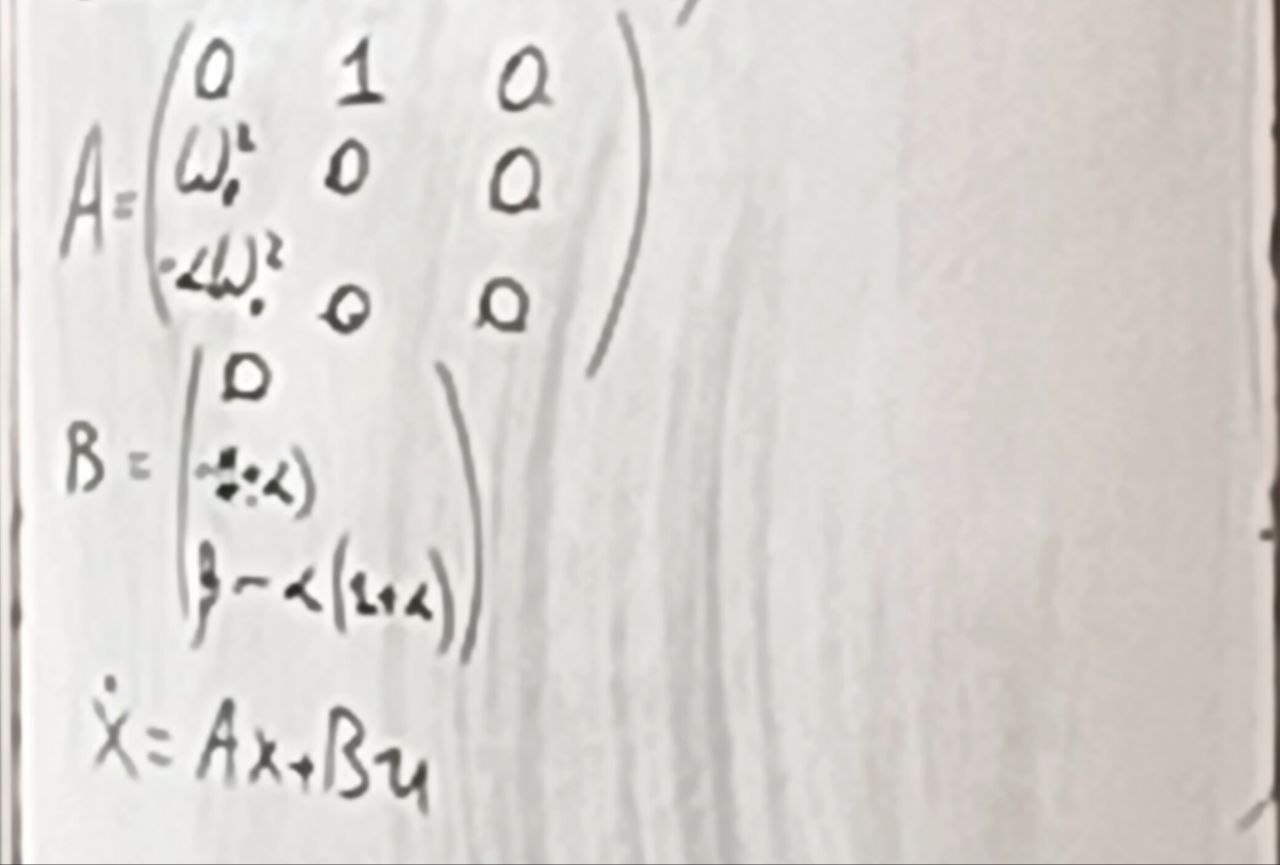 A = ( 0 1 0
ω₀² 0 0
-αω₀² 0 0 )
B = ( 0
α)
β - α(1+α) )
ẋ = Ax + Bu